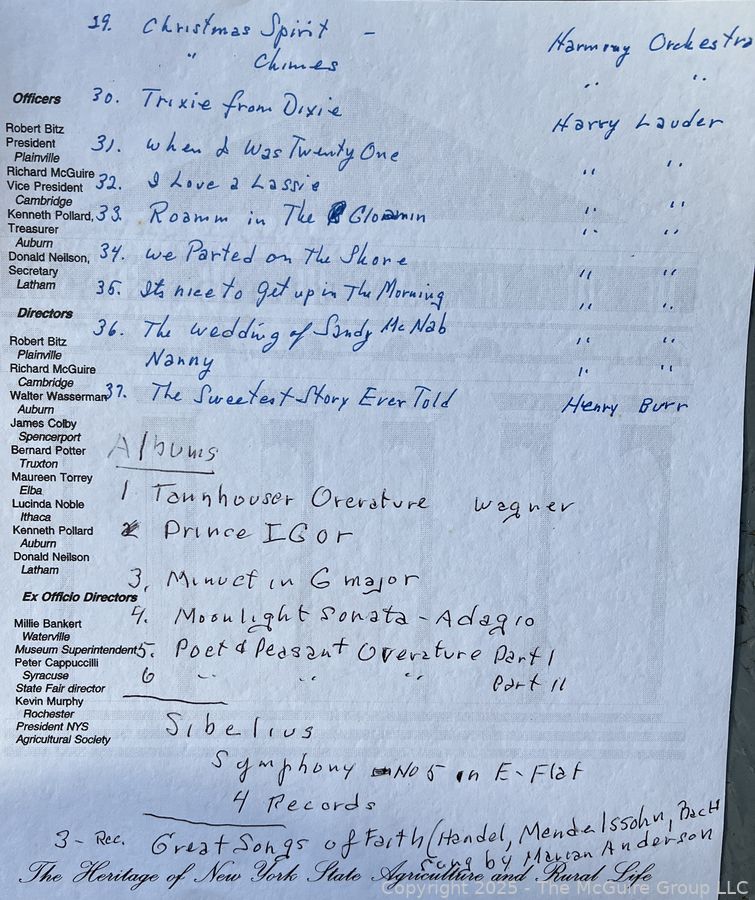 29. Christmas Spirit - Harmony Orchestra
" Chimes " "
30. Trixie from Dixie Harry Lauder
31. When I Was Twenty One " "
32. I Love a Lassie " "
33. Roamm in The Gloamin " "
34. We Parted on The Shore " "
35. Its nice to Get up in The Morning " "
36. The wedding of Sandy McNab " "
Nanny " "
37. The Sweetest Story Ever Told Henry Burr
Albums
1 Tannhouser Overature Wagner
2 Prince IGor
3. Minuet in G major
4. Moonlight Sonata - Adagio
5. Poet & Peasant Overature Part I
6 " " " Part II
Sibelius
Symphony No 5 in E-Flat
4 Records
3 - Rec. Great Songs of Faith (Handel, Mendelssohn, Bach
Sung by Marian Anderson
Officers
Robert Bitz
President
Plainville
Richard McGuire
Vice President
Cambridge
Kenneth Pollard,
Treasurer
Auburn
Donald Neilson,
Secretary
Latham
Directors
Robert Bitz
Plainville
Richard McGuire
Cambridge
Walter Wasserman
Auburn
James Colby
Spencerport
Bernard Potter
Truxton
Maureen Torrey
Elba
Lucinda Noble
Ithaca
Kenneth Pollard
Auburn
Donald Neilson
Latham
Ex Officio Directors
Millie Bankert
Waterville
Museum Superintendent
Peter Cappuccilli
Syracuse
State Fair director
Kevin Murphy
Rochester
President NYS
Agricultural Society
The Heritage of New York State Agriculture and Rural Life
Copyright 2025 - The McGuire Group LLC